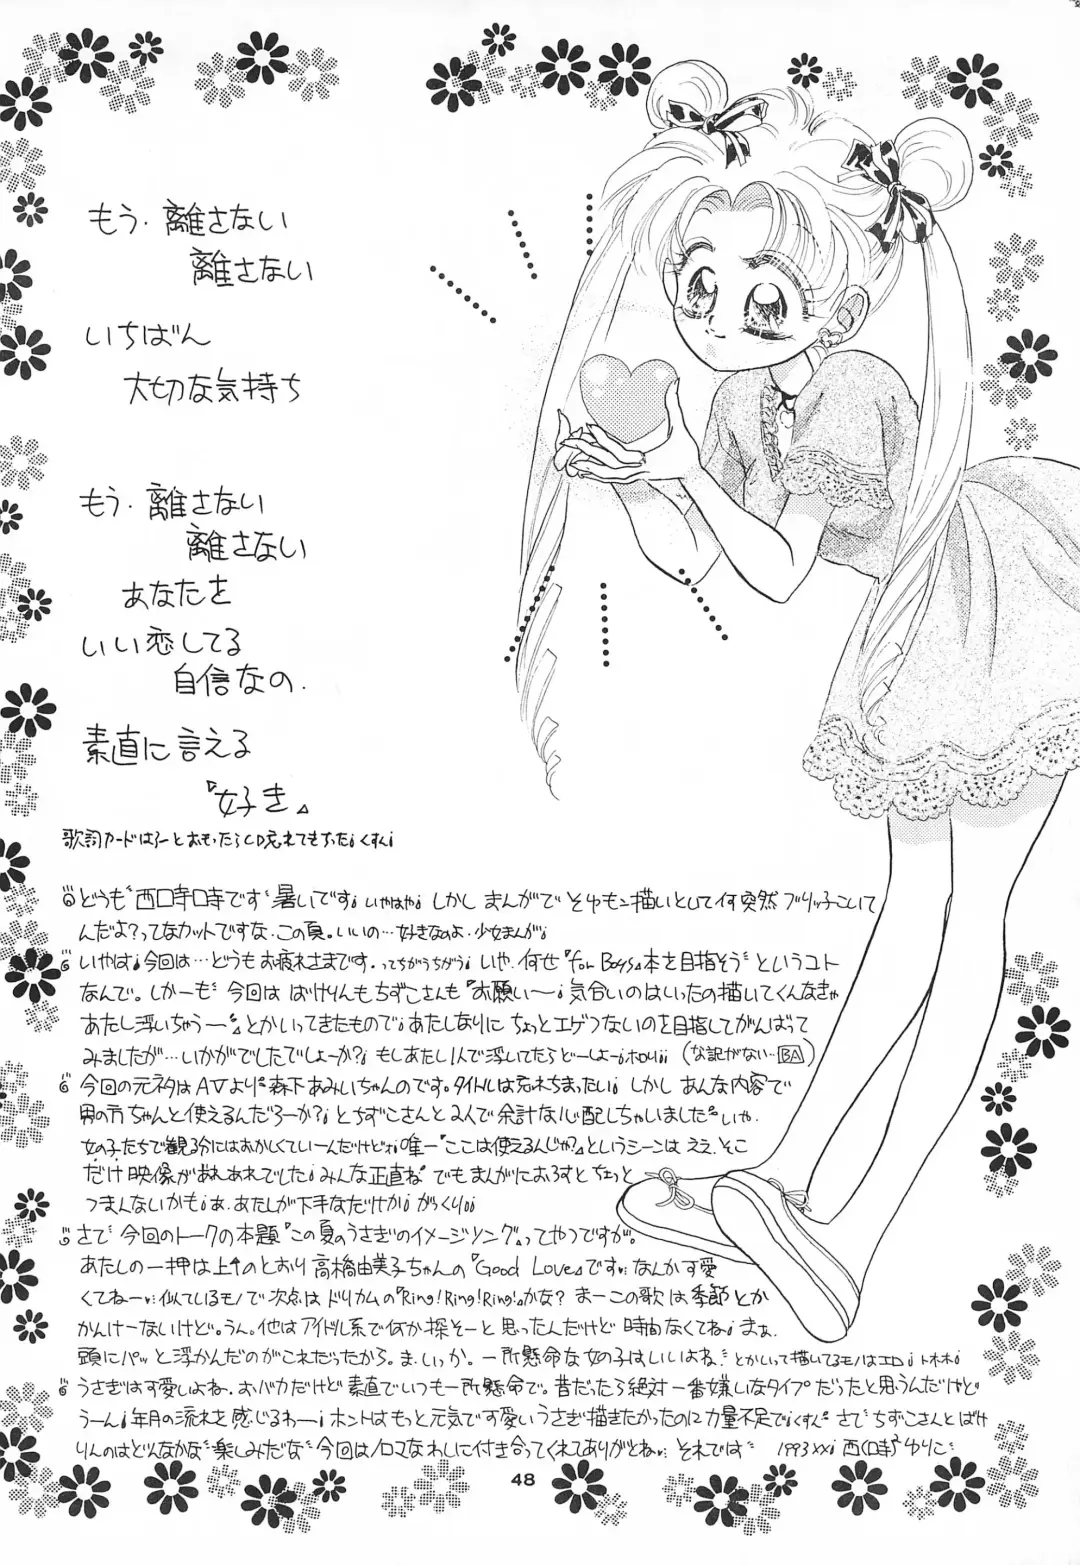 もう・離さない
離さない
いちばん
大切な気持ち
もう・離さない
離さない
あなたを
いい恋してる
自信なの.
素直に言える
『好き』
歌詞カードはろーとおもったらCD忘れてもちった¡くすん¡
どうも 暑いです¡いやはや¡しかし まんがで 描いとして何突然ブリッ子こいて
んだよ?ってなカットですな.この頁。いいの…好きなのよ.少女まんが¡
いやは¡今回は…どうもお疲れさまです.ってちがうちがう¡いや.何せ『for Boys』本を目指そう〟というコト
なんで。しかーも〝今回は ばけりんもちずこさんも〝お願い〜¡気合いのはいったの描いてくんなきゃ
あたし浮いちゃうー〟とかいってきたもので¡あたしなりに ちょっとエゲつないのを目指してがんばって
みましたが…いかがでしたでしょーか?¡もしあたし1人で浮いてたらどーしよー¡ホロリ¡¡
今回の元ネタはAVより〝森下あみいちゃんのです。タイトルは忘れちまったい¡しかし あんな内容で
男の方ちゃんと使えるんだろーか?¡とちずこさんと2人で余計な心配しちゃいました〟いや.
女の子たちで観る分にはおかしくていーんだけどォ¡唯一『ここは使えるんじゃ?』というシーンは ええ.そこ
だけ 映像があれあれでした¡みんな正直ね〝でもまんがにおろすとちょっと
つまんないかも¡あ.あたしが下手なだけか¡がっくり¡¡
さて〝今回のトークの本題『この夏のうさぎのイメージソング』ってやつですが。
あたしの一押は上のとおり高橋由美子ちゃんの『Good Love』です…なんか可愛
くてねー…似ているモノで次点はドリカムの『Ring!Ring!Ring!』かな?まーこの歌は季節とか
かんけーないけど。うん。他はアイドル系で何か探そーと思ったんだけど 時間なくてね¡まぁ.
頭にパッと浮かんだのがこれだったから。ま.いっか。一所懸命な女の子はいいよね.とかいって描いてるモノはエロ¡トホホ¡
うさぎは可愛いよね.おバカだけど素直でいつも一所懸命で。昔だったら絶対一番嫌いなタイプだったと思うんだけど
うーん¡年月の流れを感じるわー¡ホントはもっと元気で可愛いうさぎ描きたかったのに力量不足で¡くすん〟さて〝ちずこさんとばけ
りんのはどんなかな〝楽しみだな〟今回はノロマなわしに付き合ってくれてありがとね…それでは〟 1993
48